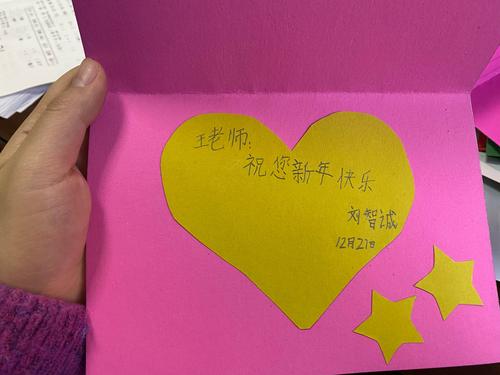 王老师：
祝您新年快乐
刘智诚
12月27日